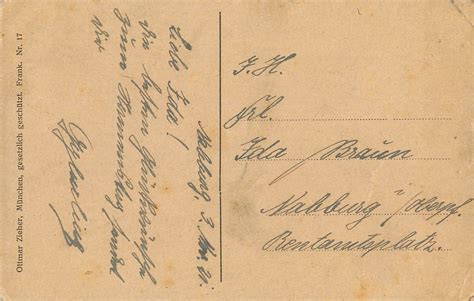 Ottmar Zieher, München, gesetzlich geschützt. Frank. Nr. 17
Nabburg, 2. Nov. 21.
Liebe Ida!
Die besten Glückwünsche
zum Namenstag sendet
Dir
F. H.
Frl.
Ida Braun
Nabburg i/Oberpf.
Rentamtsplatz.